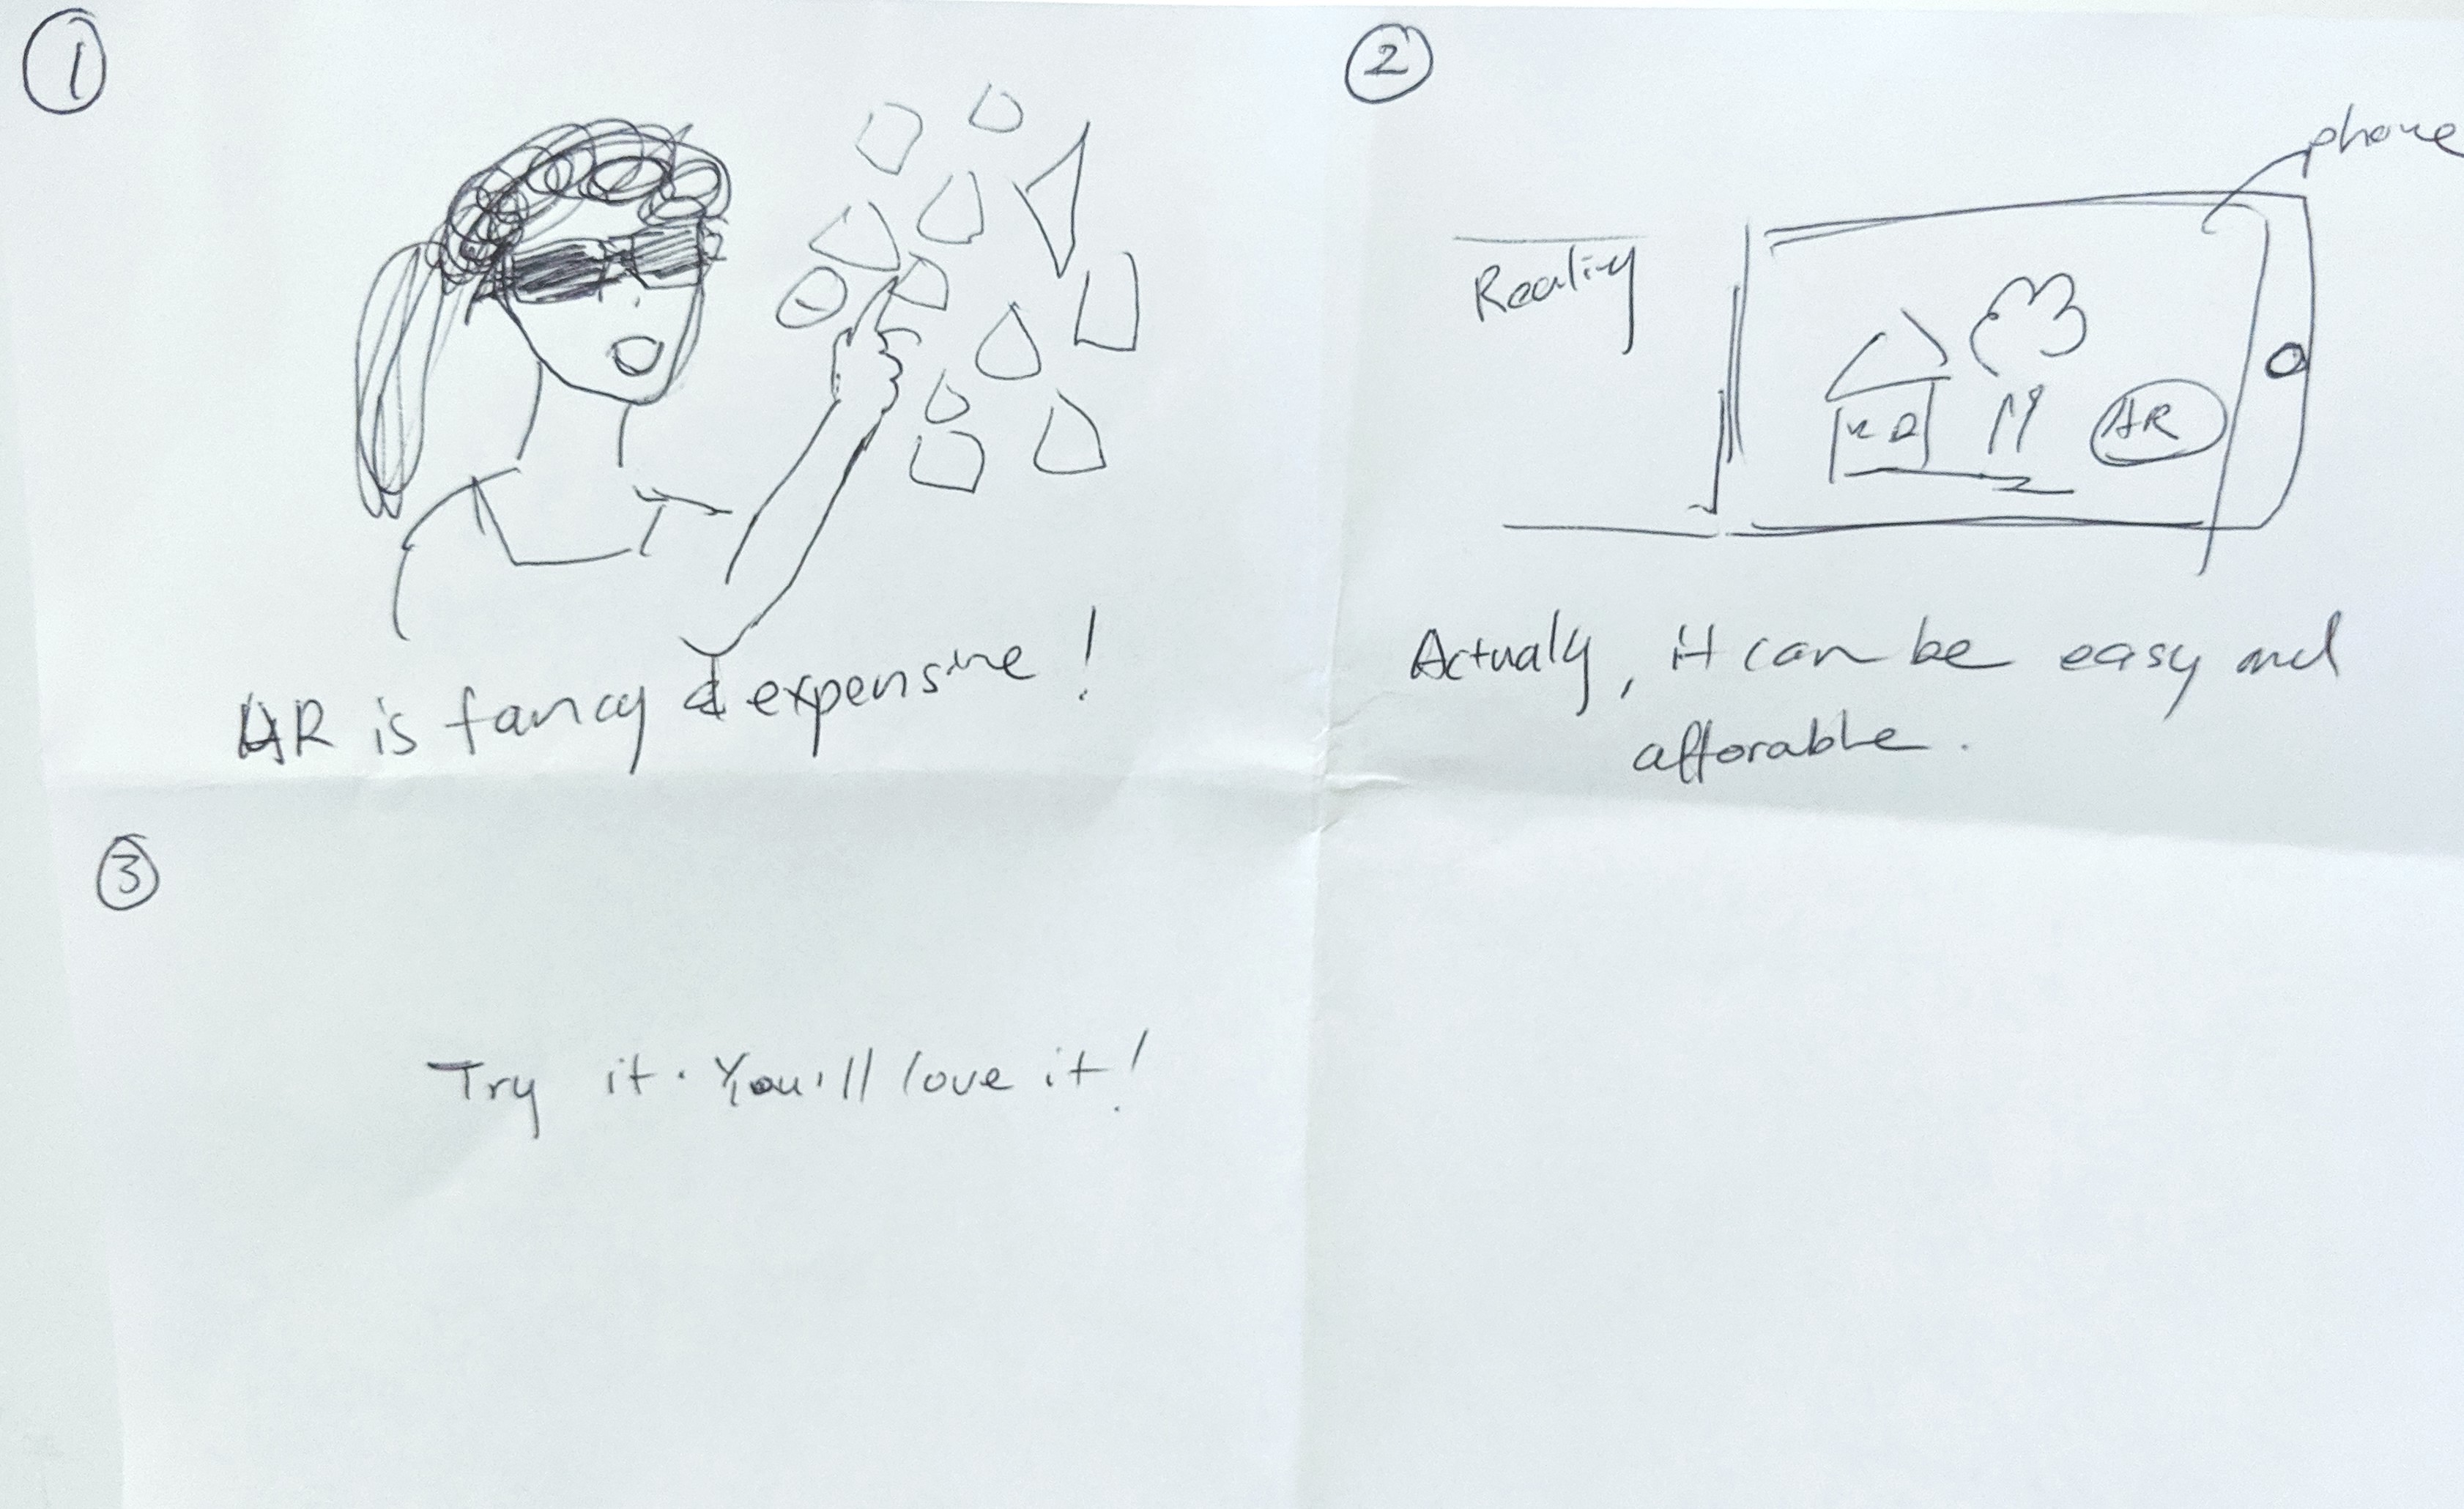 1
AR is fancy & expensive!
2
phone
Reality
AR
Actualy, it can be easy and
afforable.
3
Try it. You'll love it!